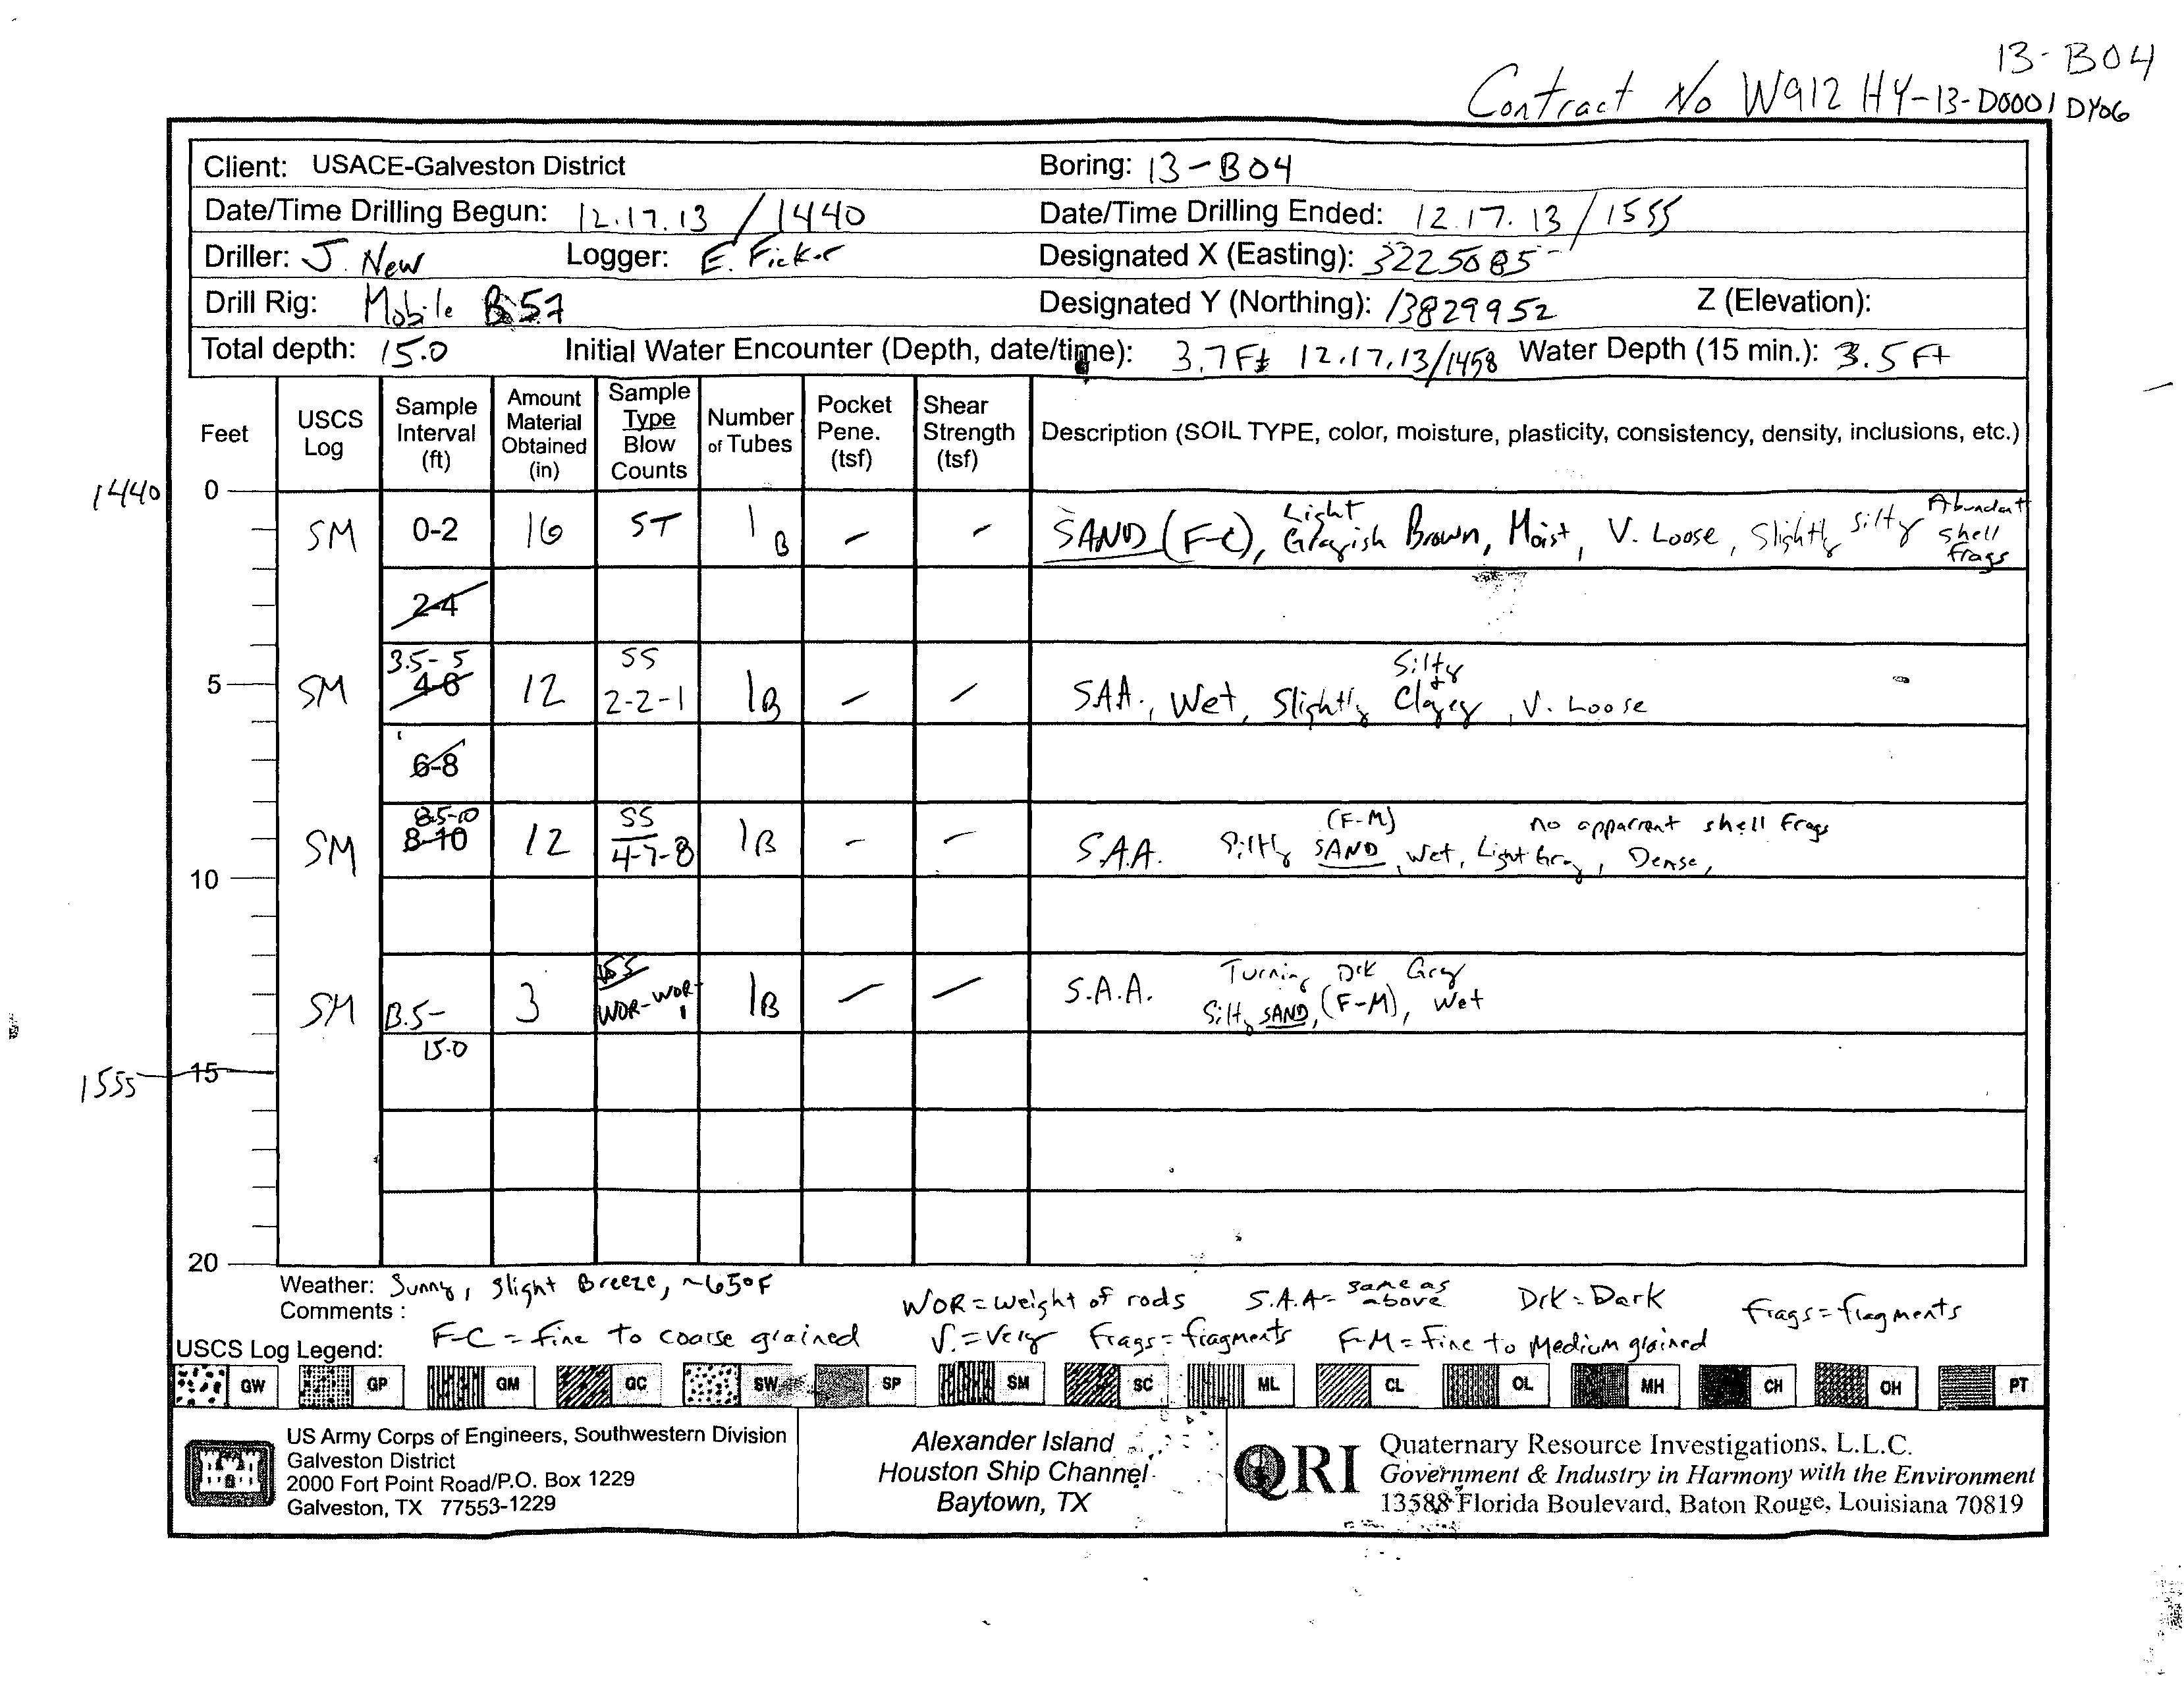 13-B04
Contract No W912HY-13-D0001 DY06
Client: USACE-Galveston District Boring: 13-B04
Date/Time Drilling Begun: 12.17.13 / 1440 Date/Time Drilling Ended: 12.17.13 / 1555
Driller: J. New Logger: E. Ficker Designated X (Easting): 3225085
Drill Rig: Mobile B57 Designated Y (Northing): 13829952 Z (Elevation):
Total depth: 15.0 Initial Water Encounter (Depth, date/time): 3.7 Ft 12.17.13/1458 Water Depth (15 min.): 3.5 Ft
Feet USCS Log Sample Interval (ft) Amount Material Obtained (in) Sample Type Blow Counts Number of Tubes Pocket Pene. (tsf) Shear Strength (tsf) Description (SOIL TYPE, color, moisture, plasticity, consistency, density, inclusions, etc.)
1440 0
SM 0-2 16 ST 1 B - - SAND (F-C), Light Grayish Brown, Moist, V. Loose, Slightly Silty Abundant shell frags
2-4
3.5-5
5 SM 4-6 12 SS 2-2-1 1 B - - SAA., Wet, Slightly Silty + Clayey, V. Loose
6-8
8.5-10
SM 8-10 12 SS 4-7-8 1 B - - S.A.A. Silty SAND (F-M), Wet, Light Gray, Dense, no apparrent shell Frags
10
SM 13.5-15.0 3 SS WOR-WOR-1 1 B - - S.A.A. Turning Drk Gray Silty SAND, (F-M), Wet
1555 15
20
Weather: Sunny, Slight Breeze, ~65°F
Comments: WOR = weight of rods S.A.A = same as above Drk = Dark frags = fragments
F-C = fine to coarse grained V. = Very Frags = fragments F-M = Fine to Medium grained
USCS Log Legend:
GW GP GM GC SW SP SM SC ML CL OL MH CH OH PT
US Army Corps of Engineers, Southwestern Division
Galveston District
2000 Fort Point Road/P.O. Box 1229
Galveston, TX 77553-1229
Alexander Island
Houston Ship Channel
Baytown, TX
QRI
Quaternary Resource Investigations, L.L.C.
Government & Industry in Harmony with the Environment
13588 Florida Boulevard, Baton Rouge, Louisiana 70819